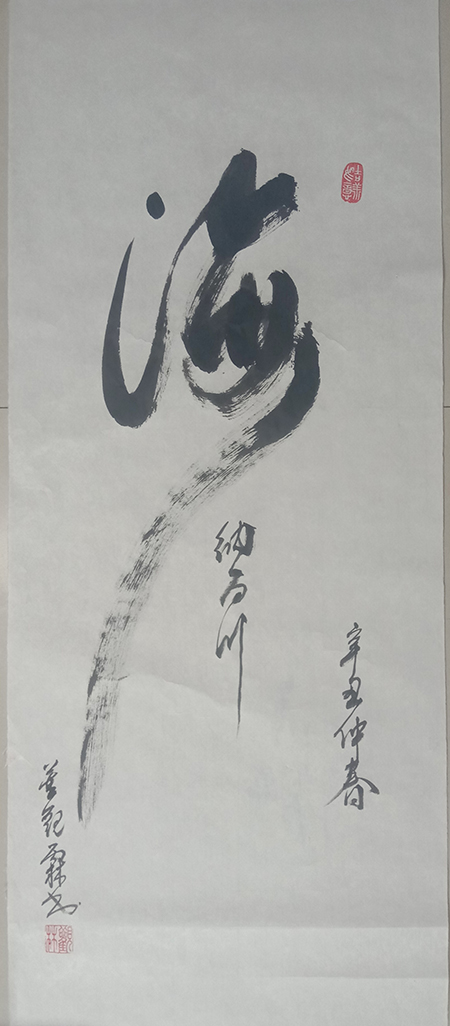 海
纳百川
辛丑仲春
董观霖书